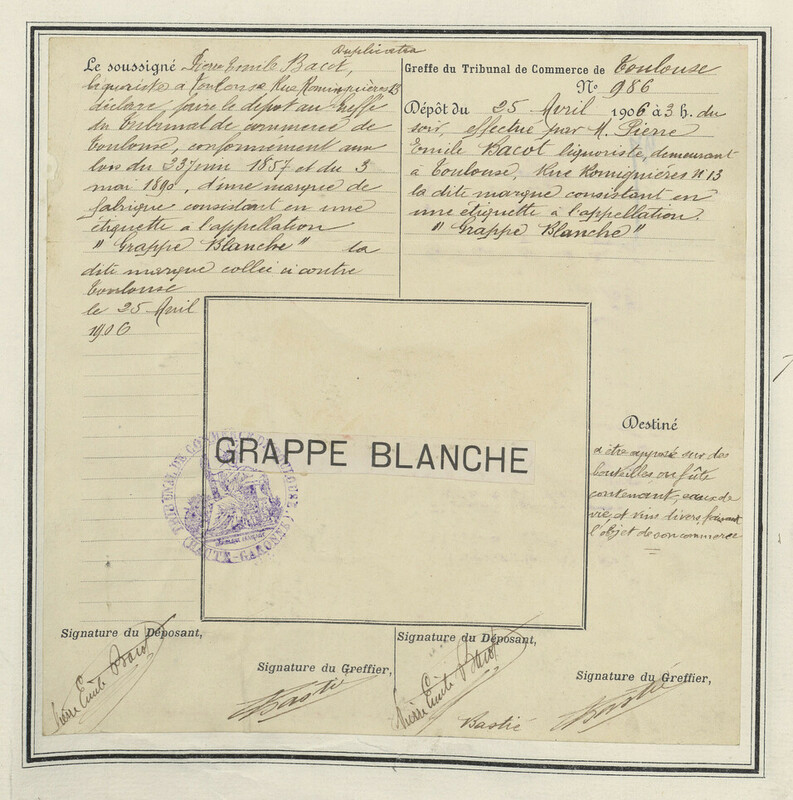 Duplicata
Le soussigné Pierre Emile Bacot,
liquoriste à Toulouse Rue Romiguières 13
déclare, faire le dépot au greffe
du Tribunal de commerce de
Toulouse, conformement aux
lois du 23 juin 1857 et du 3
mai 1890, d'une marque de
fabrique consistant en une
étiquette à l'appellation
" Grappe Blanche " la
dite marque collée ci contre
Toulouse
le 25 Avril
1906
Greffe du Tribunal de Commerce de Toulouse
No 986
Dépôt du 25 Avril 1906 à 3 h. du
soir, effectué par M. Pierre
Emile Bacot liquoriste, demeurant
à Toulouse, Rue Romiguières No 13
la dite marque consistant en
une étiquette à l'appellation
" Grappe Blanche "
GRAPPE BLANCHE
TRIBUNAL DE COMMERCE DE TOULOUSE
(HAUTE-GARONNE)
Destiné
à être apposé sur des
bouteilles ou fûts
contenant, eaux de
vie et vins divers faisant
l'objet de son commerce
Signature du Déposant,
Pierre Emile Bacot
Signature du Greffier,
Bastié
Signature du Déposant,
Pierre Emile Bacot
Bastié
Signature du Greffier,
Bastié